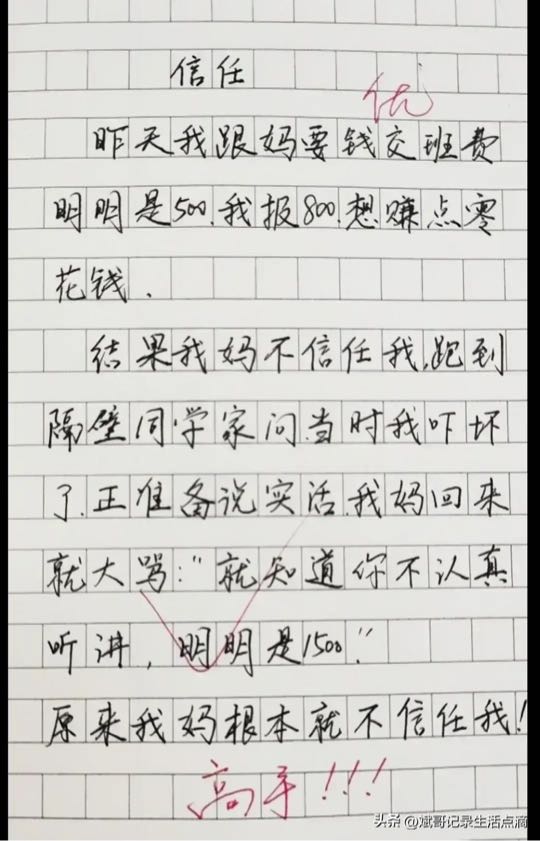 信任
优
昨天我跟妈要钱交班费
明明是500.我报800.想赚点零
花钱.
结果我妈不信任我,跑到
隔壁同学家问.当时我吓坏
了.正准备说实活.我妈回来
就大骂:"就知道你不认真
听讲,明明是1500."
原来我妈根本就不信任我!
高手!!!
头条@斌哥记录生活点滴